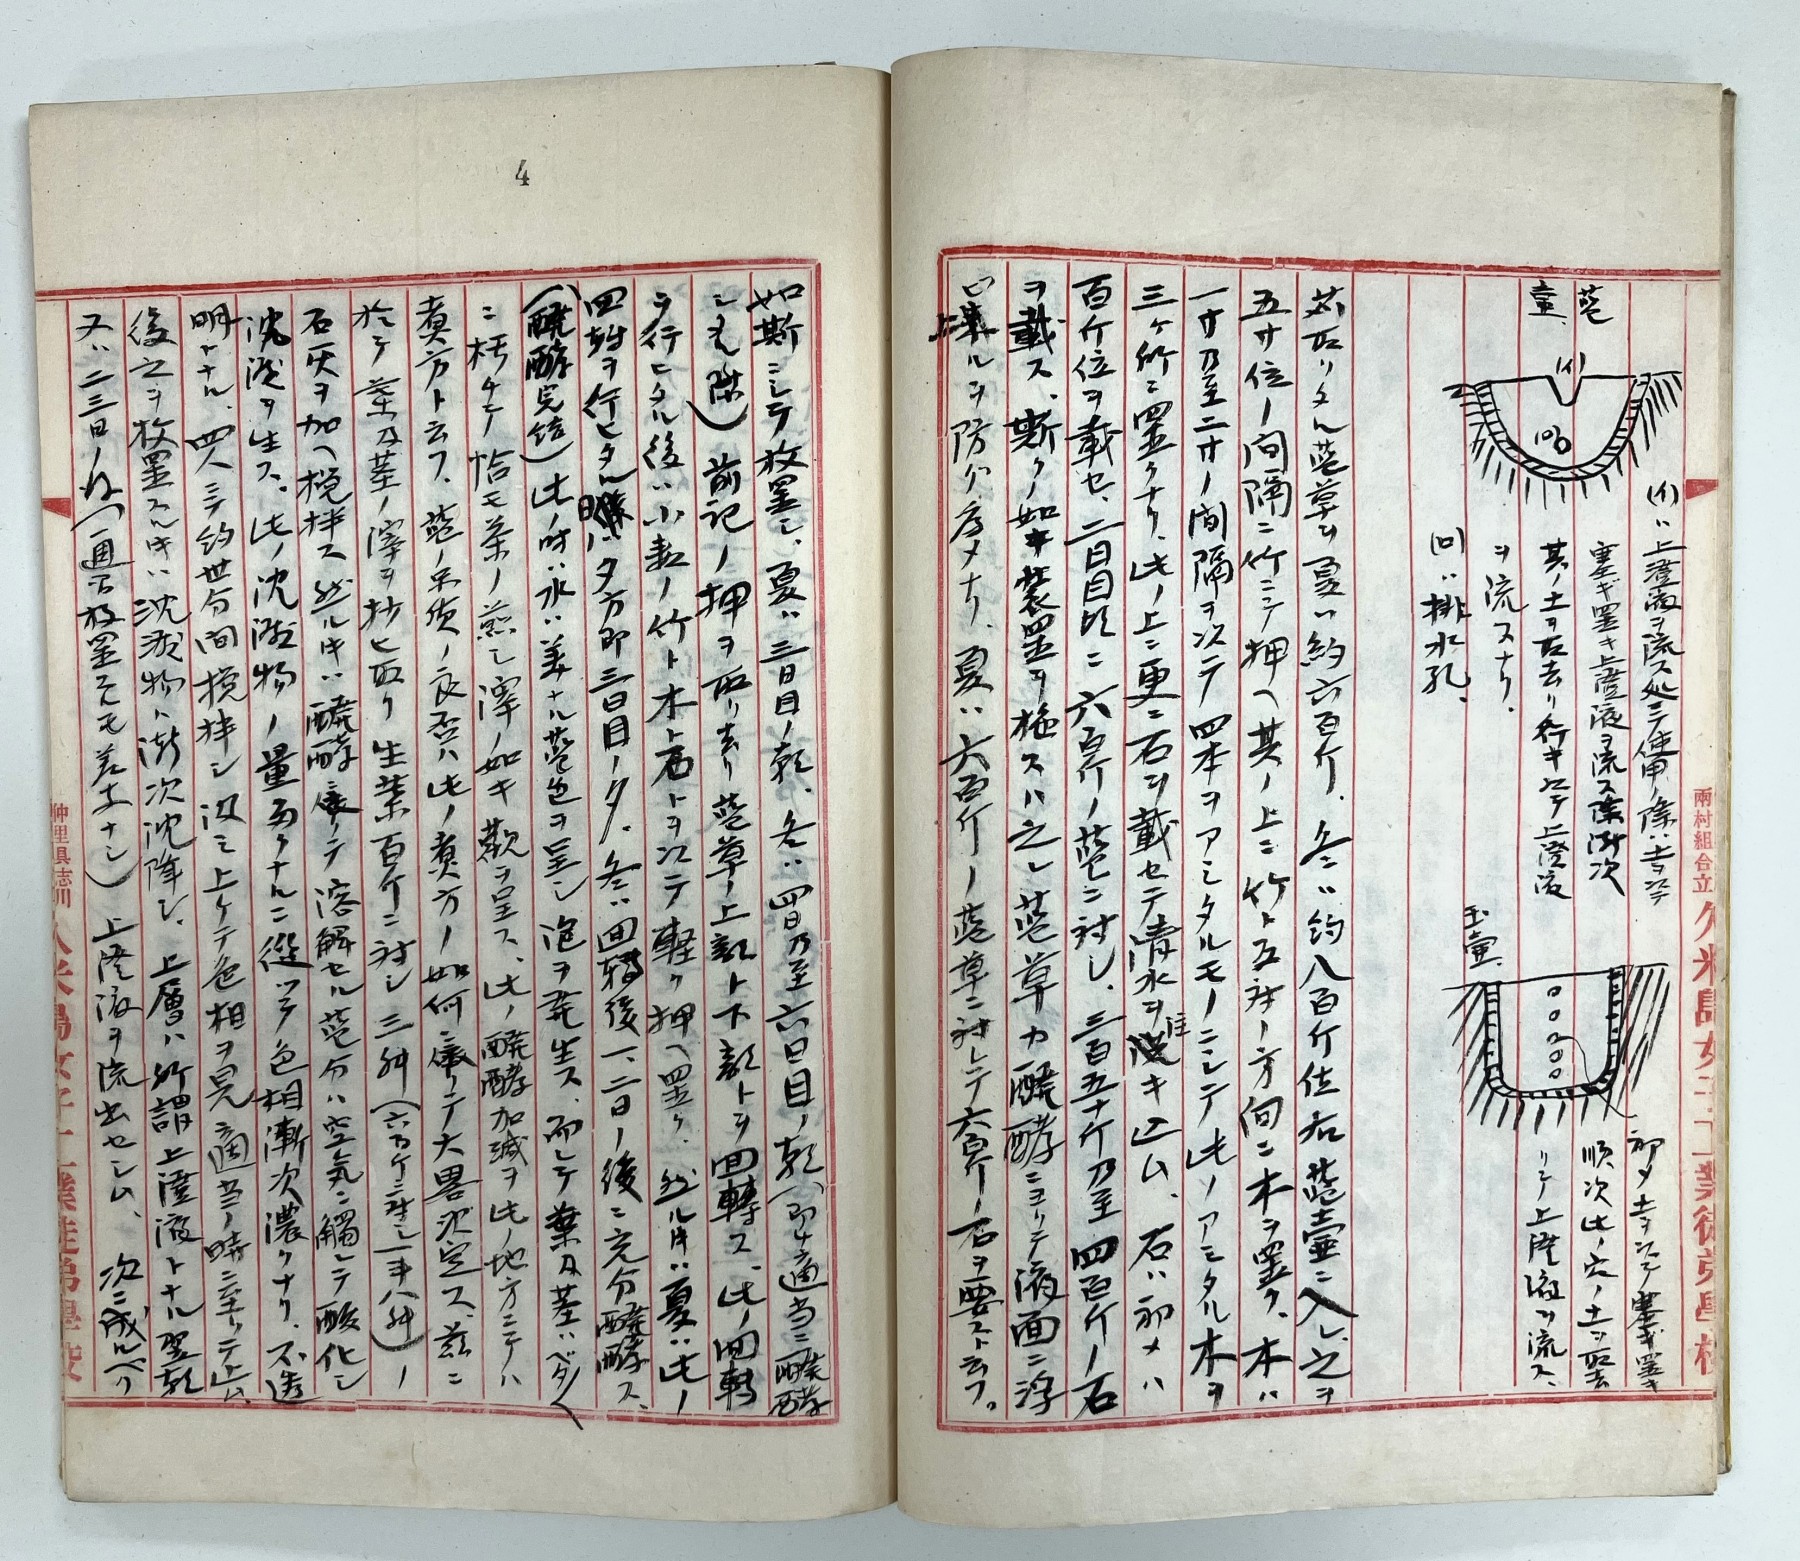 藍壷
(イ)
(ロ)
(イ)ハ上澄液ヲ流ス処ニテ使用ノ際ハ土ヲ以テ
塞ギ置キ上澄液ヲ流ス際漸次
其ノ土ヲ取去リ行キ以テ上澄液
ヲ流スナリ
(ロ)ハ排水孔、
玉壷、
初メ土ヲ以テ塞ギ置キ
順次此ノ穴ノ土ヲ取去
リテ上澄液ヲ流ス、
苅取リタル藍草ヲ夏ハ約六百斤、冬ハ約八百斤位右藍壷ニ入レ、之ヲ
五寸位ノ間隔ニ竹ニテ押ヘ其ノ上ニ竹ト互対ノ方向ニ木ヲ置ク、木ハ
一寸乃至二寸ノ間隔ヲ以テ四本ヲアミタルモノニシテ此ノアミタル木ヲ
三ヶ所ニ置クナリ、此ノ上ニ更ニ石ヲ載セテ清水ヲ注キ込ム、石ハ初メハ
百斤位ヲ載セ、二日目頃ニ六百斤ノ藍ニ対シ、三百五十斤乃至四百斤ノ石
ヲ載ス、斯クノ如キ装置ヲ施スハ之レ藍草カ醗酵ニヨリテ液面ニ浮
上スルヲ防グ為メナリ、夏ハ六百斤ノ藍草ニ対シテ六百斤ノ石ヲ要スト云フ。
兩村組合立久米島女子工業徒弟學校
4
如斯ニシテ放置シ、夏ハ三日目ノ朝、冬ハ四日乃至六日目ノ朝(即チ適当ニ醗酵
シタル際)前記ノ押ヲ取リ去リ藍草ノ上部ト下部トヲ回轉ス、此ノ回転
ヲ行ヒタル後ハ小数ノ竹ト木ト石トヲ以テ軽ク押ヘ置ク、然ル時ハ夏ハ此ノ
回転ヲ行ヒタル日ノ夕方即三日目ノ夕、冬ハ回轉後一、二日ノ後ニ充分醗酵ス、
(醗酵完結)此ノ時ハ水ハ美ナル藍色ヲ呈シ泡ヲ発生ス、而シテ葉及茎ハベタ〱
ニ朽チテ恰モ茶ノ煎シ滓ノ如キ観ヲ呈ス、此ノ醗酵加減ヲ此ノ地方ニテハ
煮方ト云フ、藍ノ品質ノ良否ハ此ノ煮方ノ如何ニ依リテ大畧決定ス、茲ニ
於テ葉及茎ノ滓ヲ抄ヒ取リ生葉百斤ニ対シ三升(六百斤ニ対シ一斗八升)ノ
石灰ヲ加ヘ撹拌ス然ル時ハ醗酵ニ依リテ溶解セル藍分ハ空気ニ觸レテ酸化シ
沈澱ヲ生ス、此ノ沈澱物ノ量多クナルニ従ツテ色相漸次濃クナリ、不透
明トナル、四人ニテ約卅分間撹拌シ汲ミ上ケテ色相ヲ見適当ノ時ニ至リテ止ム、
後之ヲ放置スル時ハ沈澱物ハ漸次沈降シ、上層ハ所謂上澄液トナル翌朝
又ハ二三日ノ後(一週間放置スルモ差支ナシ)上澄液ヲ流出セシム、次ニ成ルベク
仲里具志川 久米島女子工業徒弟學校